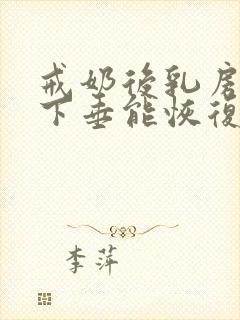 戒奶後乳房
下垂能恢復
李萍